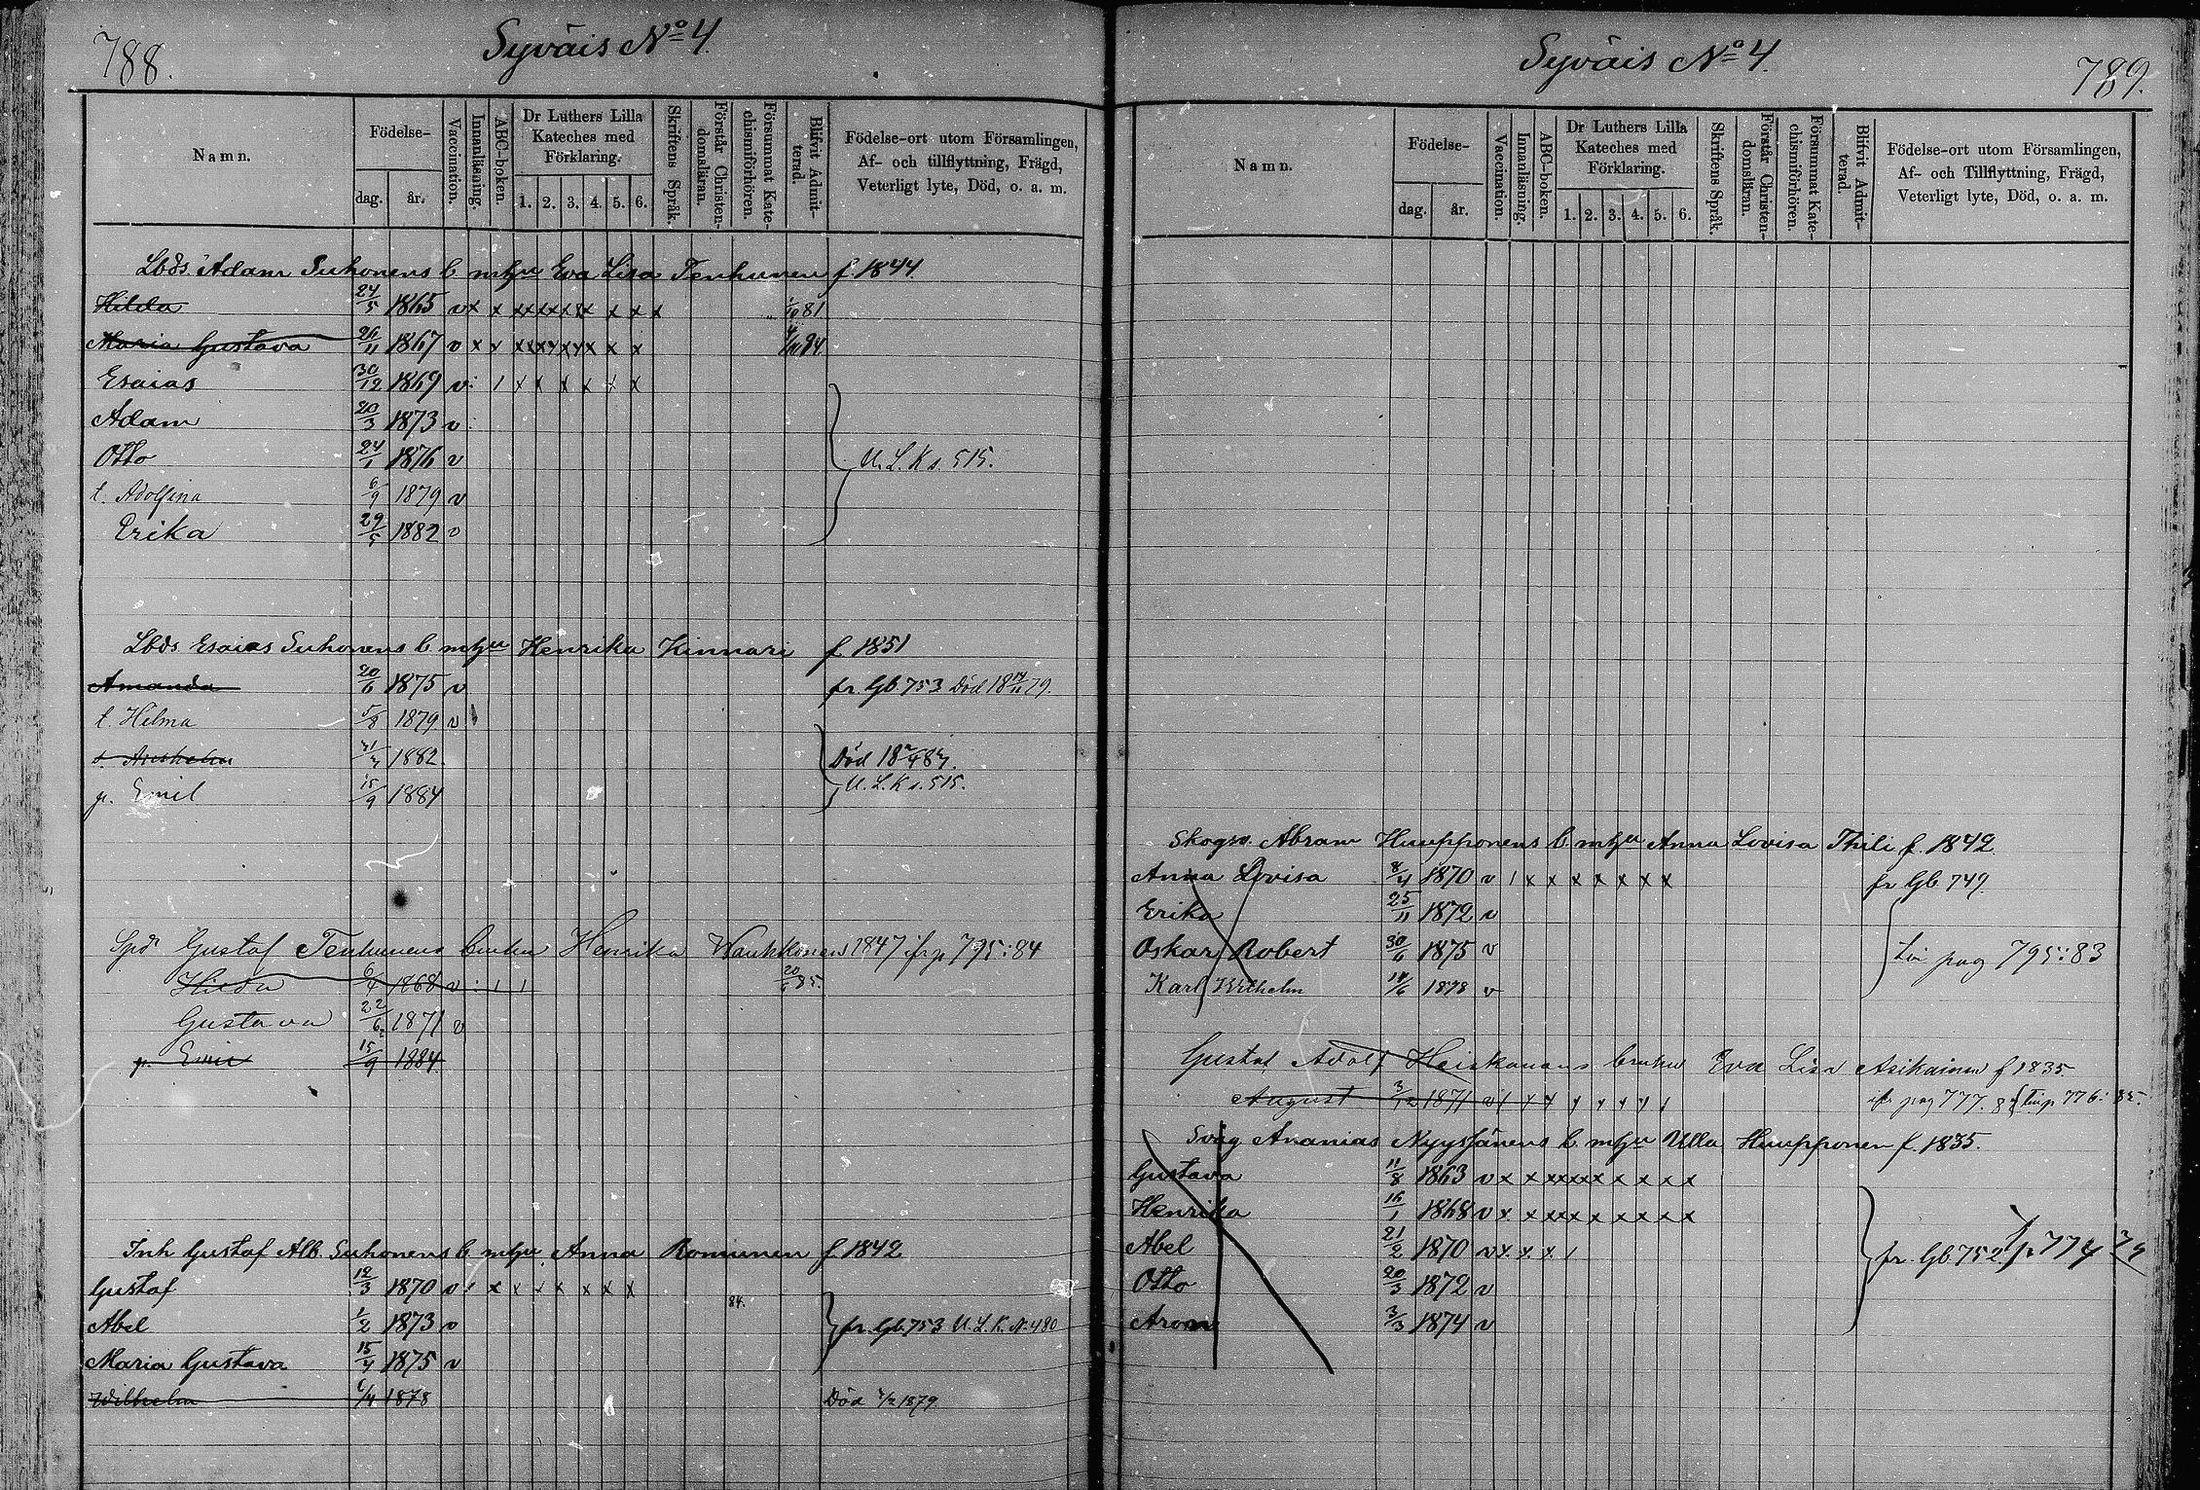 788.
Syväis No 4.
Namn.
Födelse-
dag.
år.
Vaccination.
Innanläsning.
ABC-boken.
Dr Luthers Lilla Kateches med Förklaring.
1. 2. 3. 4. 5. 6.
Skriftens Språk.
Förstår Christen-domsläran.
Försummat Kate-chismiförhören.
Blifvit Admit-terad.
Födelse-ort utom Församlingen,
Af- och tillflyttning, Frägd,
Veterligt lyte, Död, o. a. m.
Lbds. Adam Suhonens b. m hu Eva Lisa Tenhunen f 1844
Hilda 24/5 1865 v x x x x x x x x x x x 1/10 81
Maria Gustava 26/11 1867 v x x x x x x x x x x 84
Esaias 30/12 1869 v: / x x x x x x
Adam 20/3 1873 v
Otto 24/1 1876 v U. L. K s. 515.
t. Adolfina 6/9 1879 v
Erika 29/5 1882 v
Lbds Esaias Suhonens b m hu Henrika Kinnari f 1851
Amanda 20/6 1875 v fr. Gb. 753 Död 18 79.
t. Helma 5/8 1879 v
1882 Död 18
p. Emil 15/9 1884 U. L. K s. 515.
Gustaf Tenhunens Henrika 1847 795:84
Hilda 6/4 1868 v : 1 1 85.
Gustava 22/6 1871 v
p. Emil 15/9 1884
Inh Gustaf Alb. Suhonens b. m hu Anna Romunen f 1842
Gustaf 12/3 1870 v : x x x x x x x
84.
Abel 1/2 1873 v fr. Gb 753 U. L. K. N. 480
Maria Gustava 15/4 1875 v
Wilhelm 6/4 1878 Död 1879
Syväis No 4.
789.
Namn.
Födelse-
dag.
år.
Vaccination.
Innanläsning.
ABC-boken.
Dr Luthers Lilla Kateches med Förklaring.
1. 2. 3. 4. 5. 6.
Skriftens Språk.
Förstår Christen-domsläran.
Försummat Kate-chismiförhören.
Blifvit Admit-terad.
Födelse-ort utom Församlingen,
Af- och Tillflyttning, Frägd,
Veterligt lyte, Död, o. a. m.
Skogsv. Abram Huupponens b. m hu Anna Lovisa Thili f. 1842.
Anna Lovisa 8/4 1870 v / x x x x x x x fr Gb 749.
Erika 25/11 1872 v
Oskar Robert 30/6 1875 v pag 795:83
Karl Wilhelm 14/6 1878 v
Gustaf Adolf Heiskanens Eva Lisa Asikainen f 1835
August 3/12 1871 v pag 777. 776:
Svåg Ananias Nyyssönens b. m hu Ulla Huupponen f. 1835.
Gustava 11/8 1863 v x x x x x x x x x x x
Henrika 16/1 1868 v x x x x x x x x x x
Abel 21/2 1870 v x x x x / fr. Gb 752. 774
Otto 20/3 1872 v
Aron 3/3 1874 v